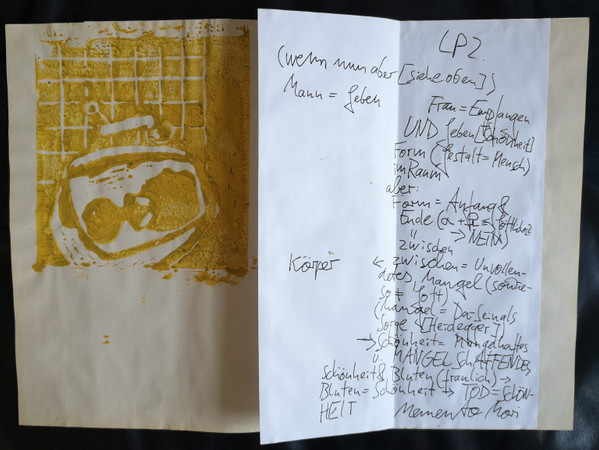 LP2.
(wenn nun aber [siehe oben])
Mann = Geben
Frau = Empfangen
UND Geben [Schönheit]
Form (Gestalt = Mensch)
im Raum
aber:
Form = Anfang &
Ende (α + Ω =
→ NEIN)
zwischen
Körper ← zwischen = Unvollen-
detes, Mangel (
so ≠ Gott)
(Mangel = Da-Sein als
Sorge [Heidegger]
→ Schönheit = Mangelhaftes
u. MANGEL SchAFFENDES
Schönheit & Bluten (fraulich) →
Bluten = Schönheit → TOD = SCHÖN-
HEIT Memento Mori